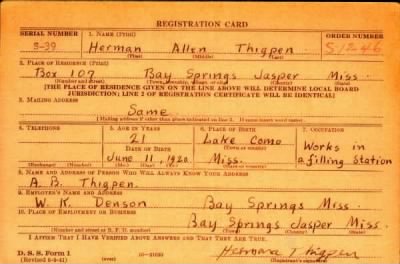 REGISTRATION CARD
SERIAL NUMBER 1. NAME (Print) ORDER NUMBER
S-39 Herman Allen Thigpen S-1246
(First) (Middle) (Last)
2. PLACE OF RESIDENCE (Print)
Box 107 Bay Springs Jasper Miss.
(Number and street) (Town, township, village or city) (County) (State)
[THE PLACE OF RESIDENCE GIVEN ON THE LINE ABOVE WILL DETERMINE LOCAL BOARD
JURISDICTION; LINE 2 OF REGISTRATION CERTIFICATE WILL BE IDENTICAL]
3. MAILING ADDRESS
Same
[Mailing address if other than place indicated on line 2. If same insert word same]
4. TELEPHONE 5. AGE IN YEARS 6. PLACE OF BIRTH 7. OCCUPATION
21 Lake Como
DATE OF BIRTH (Town or county) Works in
June 11, 1920 Miss. a filling Station
(Exchange) (Number) (Mo.) (Day) (Yr.) (State or country)
8. NAME AND ADDRESS OF PERSON WHO WILL ALWAYS KNOW YOUR ADDRESS
A. B. Thigpen.
9. EMPLOYER'S NAME AND ADDRESS
W. K. Denson Bay Springs Miss.
10. PLACE OF EMPLOYMENT OR BUSINESS
Bay Springs Jasper Miss.
(Number and street or R. F. D. number) (Town) (County) (State)
I AFFIRM THAT I HAVE VERIFIED ABOVE ANSWERS AND THAT THEY ARE TRUE.
D. S. S. Form 1
(Revised 6-9-41) 16-21630 (Registrant's signature)